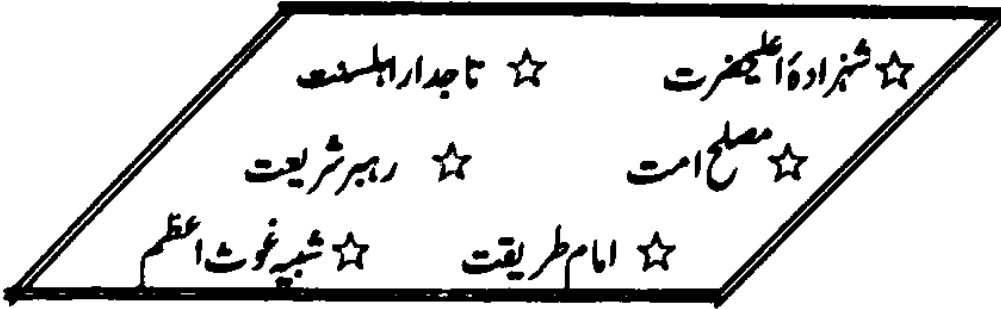 ☆ شہزادۂ اعلیٰحضرت ☆ تاجدار اہلسنت
☆ مصلح امت ☆ رہبر شریعت
☆ امام طریقت ☆ شبیہ غوث اعظم